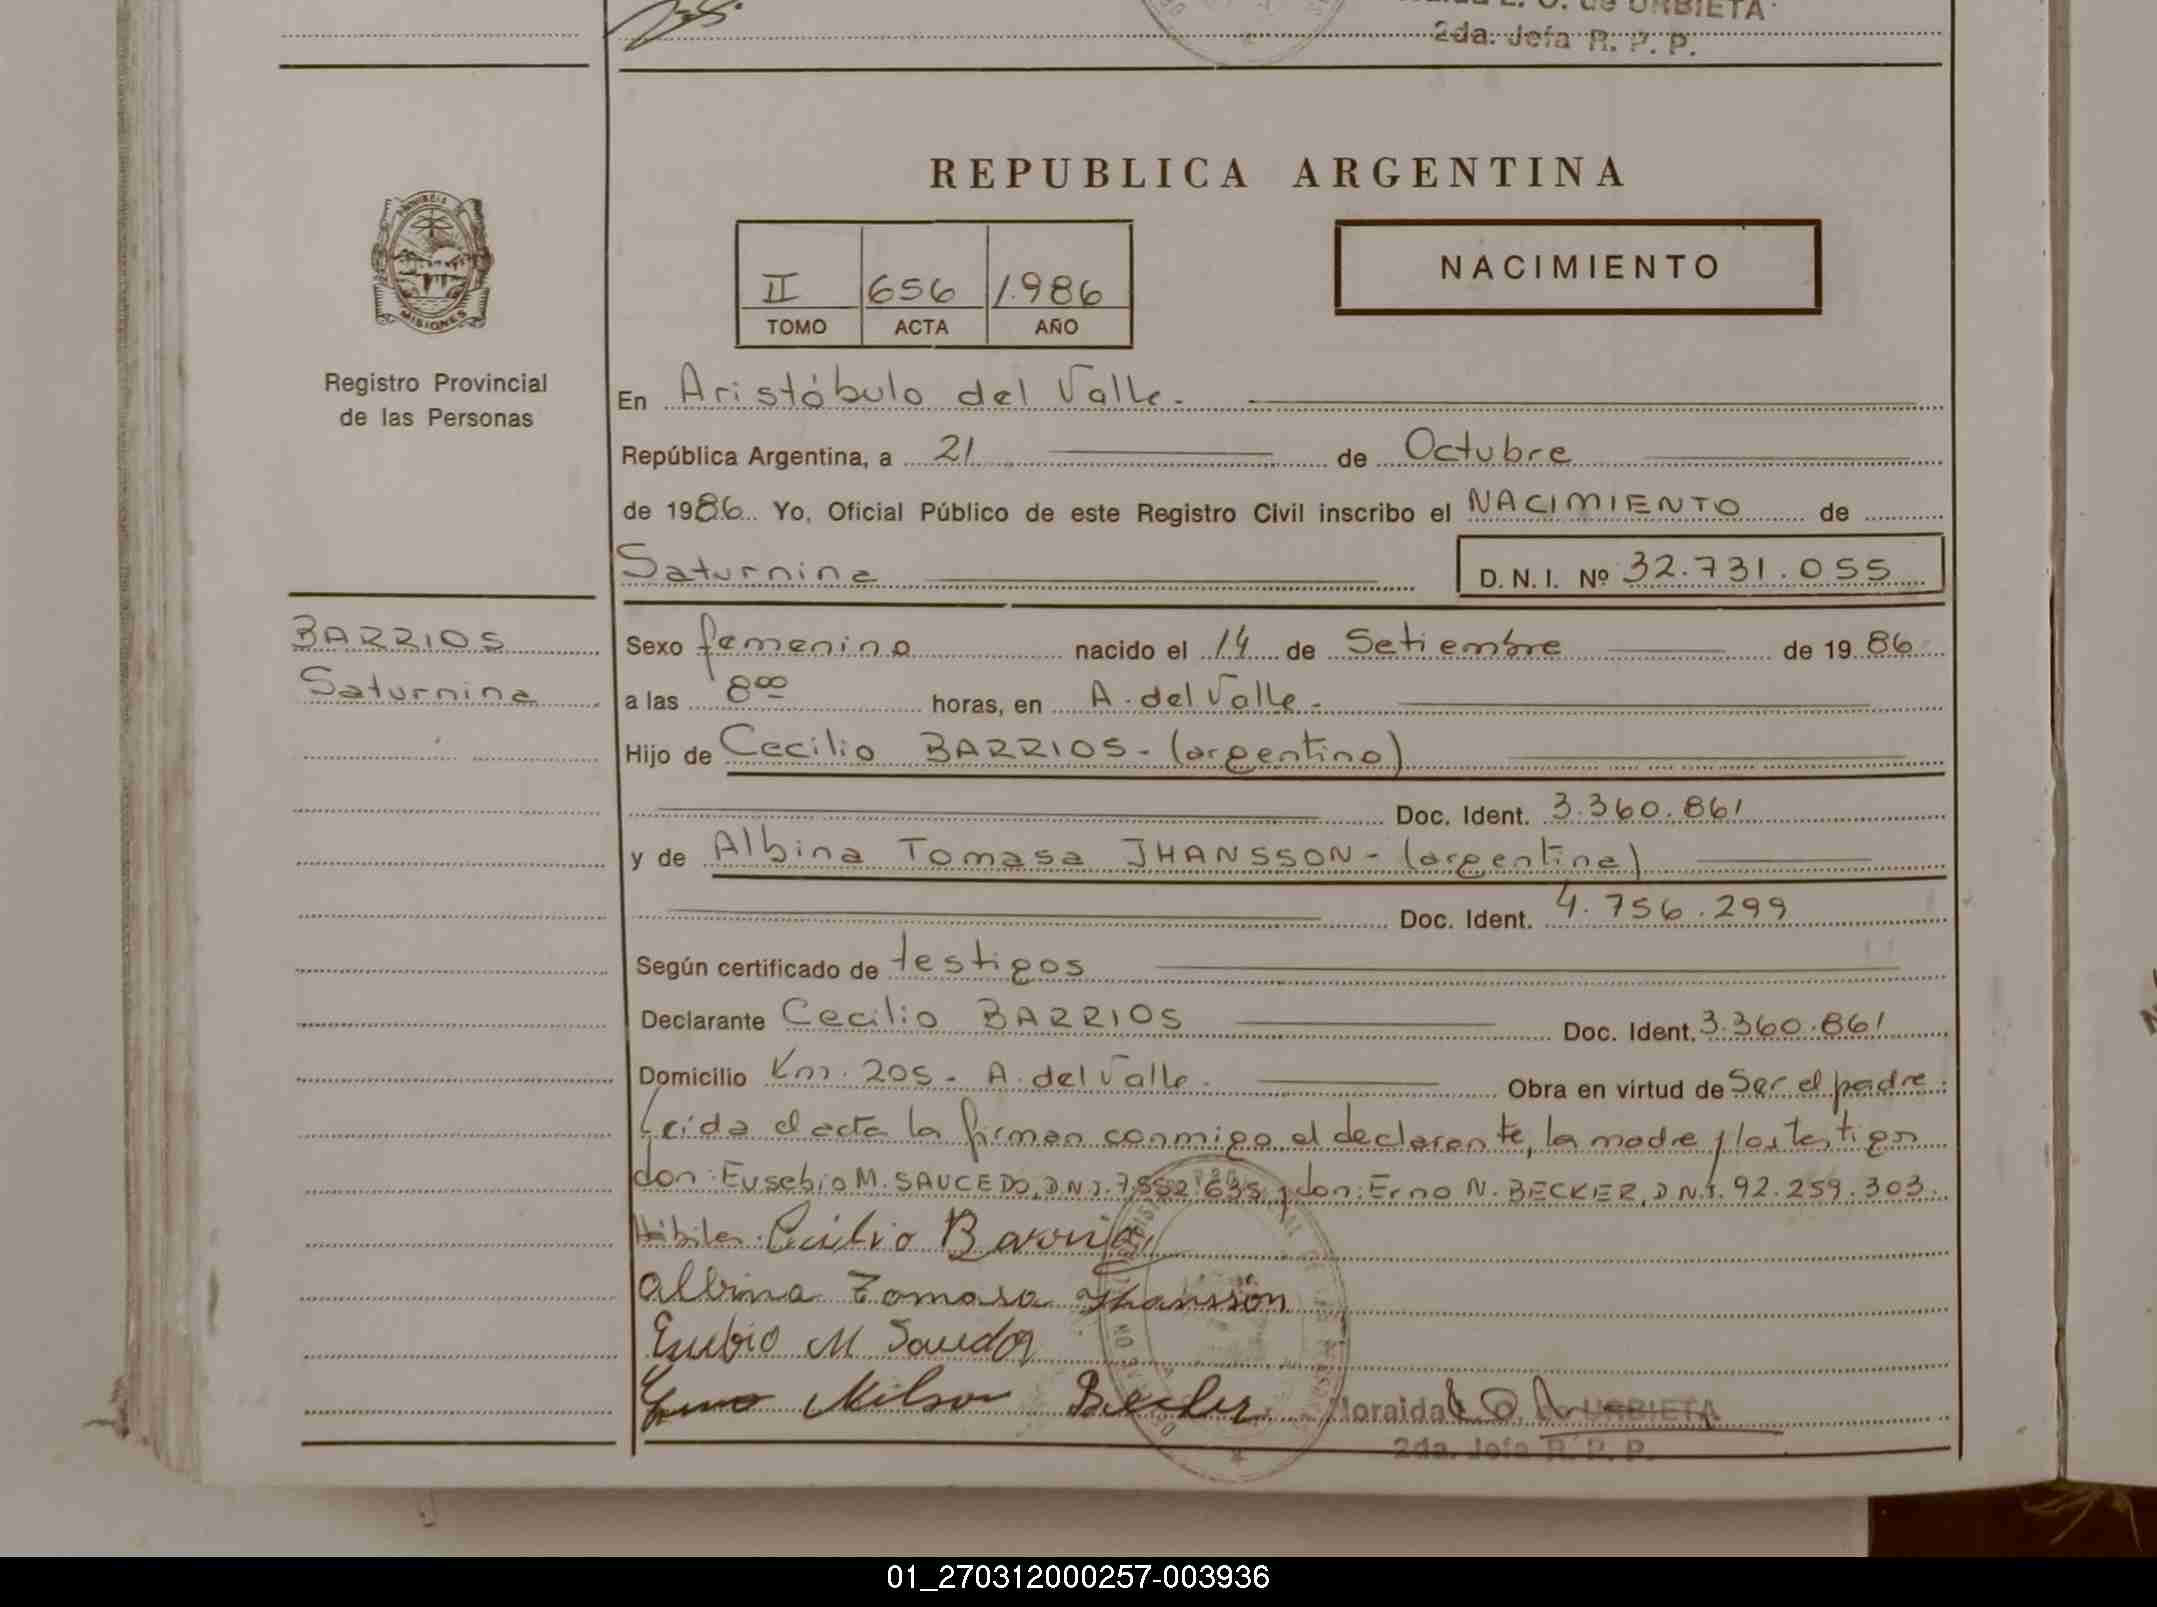 de URBIETA
2da. Jefa R. P. P.
REPUBLICA ARGENTINA
PROVINCIA
MISIONES
II 656 1.986
TOMO ACTA AÑO
NACIMIENTO
Registro Provincial
de las Personas
En Aristóbulo del Valle.
República Argentina, a 21 de Octubre
de 1986 Yo, Oficial Público de este Registro Civil inscribo el NACIMIENTO de
Saturnina D. N. I. Nº 32.731.055
BARRIOS
Saturnina
Sexo femenino nacido el 14 de Setiembre de 1986
a las 8 00 horas, en A. del Valle.
Hijo de Cecilio BARRIOS - (argentino)
Doc. Ident. 3.360.861
y de Albina Tomasa JHANSSON - (argentina)
Doc. Ident. 4.756.299
Según certificado de testigos
Declarante Cecilio BARRIOS Doc. Ident. 3.360.861
Domicilio Km. 205 - A. del Valle. Obra en virtud de Ser el padre.
Leida el acta la firman conmigo el declarante, la madre y los testigos
don: Eusebio M. SAUCEDO, D.N.I. 7.552.635 y don: Erno N. BECKER, D.N.I. 92.259.303.
Hábiles. Cecilio Barrios
Albina Tomasa Jhansson
Eusebio M Saucedo
Erno Nilson Becker
Floraida URBIETA
2da. Jefa R. P. P.
01_270312000257-003936